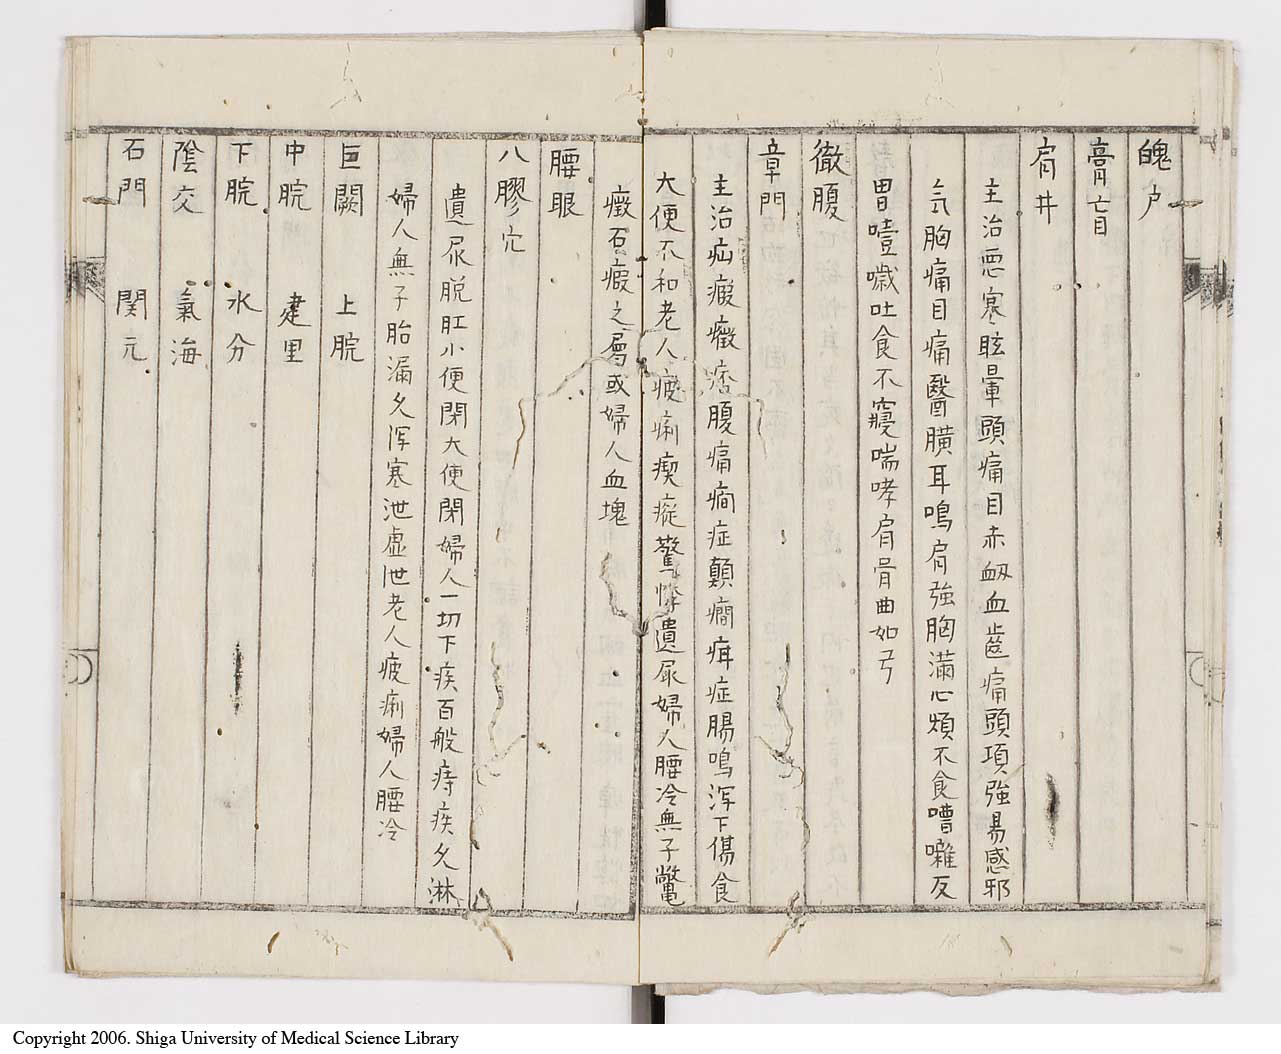 魄户
膏盲
肩井
主治悪寒眩暈頭痛目赤衂血齒痛頭項強易感邪
気胸痛目痛醫膭耳鳴肩強胸滿心煩不食嘈囃反
胃噎噦吐食不寢喘哮肩骨曲如弓
徹腹
章門
主治疝瘕癥痞腹痛癇症顛癇疳症腸鳴浑下傷食
大便不和老人疲痢瘈瘲驚悸遺尿婦人腰冷無子鼈
癥石瘕之屬或婦人血塊
腰眼
八膠穴
遺尿脱肛小便閉大便閉婦人一切下疾百般痔疾久淋
婦人無子胎漏久浑寒泄虚泄老人疲痢婦人腰冷
巨闕 上脘
中脘 建里
下脘 水分
陰交 氣海
石門 関元
Copyright 2006. Shiga University of Medical Science Library